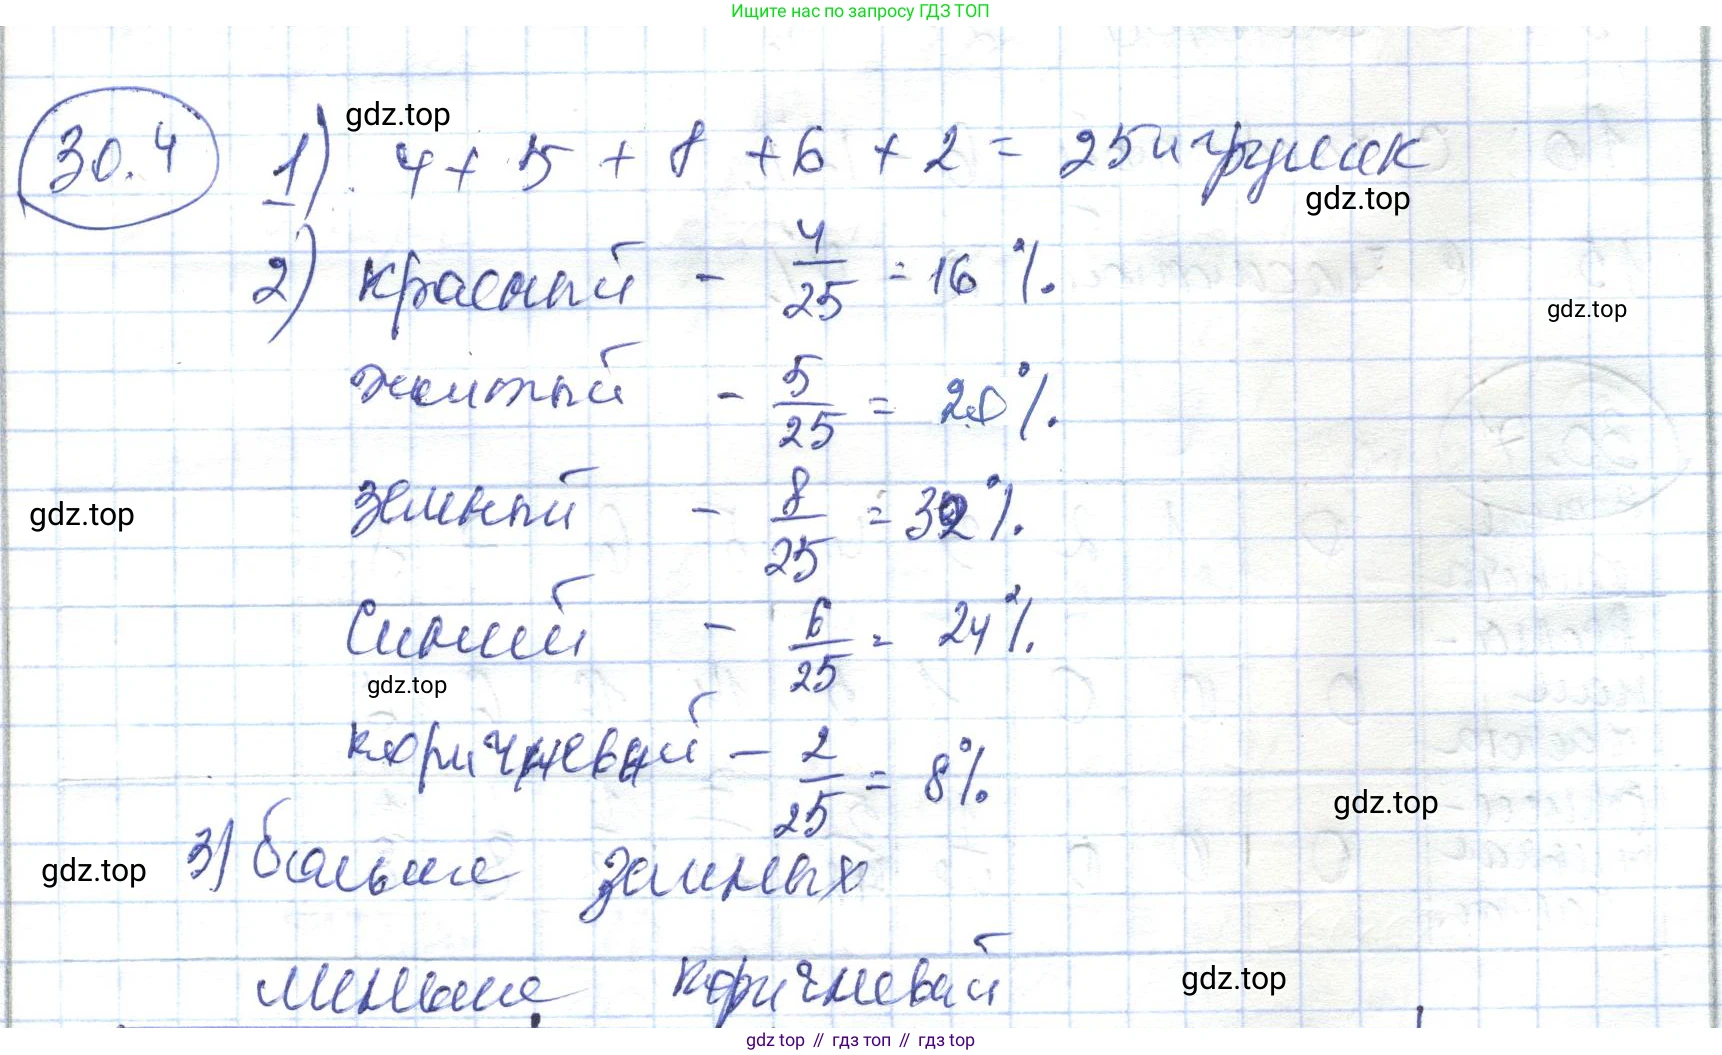 Ищите нас по запросу ГДЗ ТОП
gdz.top
30.4 1) 4 + 5 + 8 + 6 + 2 = 25 игрушек
gdz.top
2) красный - 4/25 = 16 %.
gdz.top
желтый - 5/25 = 20 %.
зеленый - 8/25 = 32 %.
gdz.top
синий - 6/25 = 24 %.
gdz.top
коричневый - 2/25 = 8 %.
gdz.top
3) больше зеленых
gdz.top
меньше коричневый
gdz.top
gdz top // гдз топ // gdz top